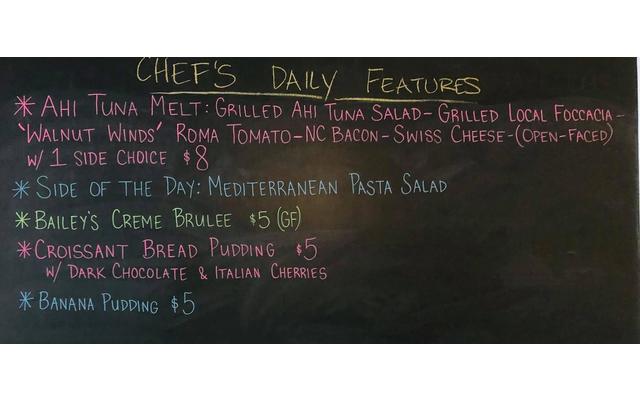 CHEF'S DAILY FEATURES
* AHI TUNA MELT: GRILLED AHI TUNA SALAD - GRILLED LOCAL FOCCACIA -
'WALNUT WINDS' ROMA TOMATO - NC BACON - SWISS CHEESE - (OPEN-FACED)
W/ 1 SIDE CHOICE $8
* SIDE OF THE DAY: MEDITERRANEAN PASTA SALAD
* BAILEY'S CREME BRULEE $5 (GF)
* CROISSANT BREAD PUDDING $5
W/ DARK CHOCOLATE & ITALIAN CHERRIES
* BANANA PUDDING $5